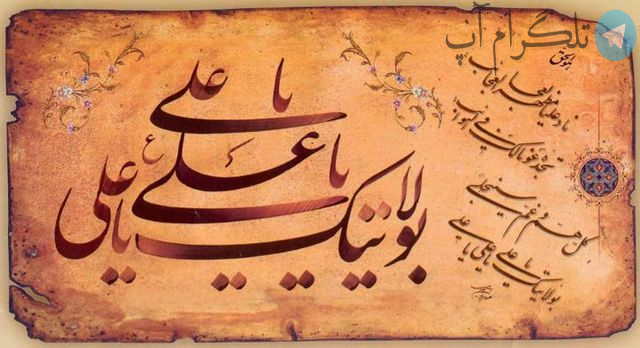 تلگرام آپ
هوالحق
ناد علیا مظهر العجائب
تجده عونا لک فی النوائب
کل هم و غم سینجلی
بولایتک یا علی یا علی یا علی
یا علی
یا علی ع
بولایتک یا علی